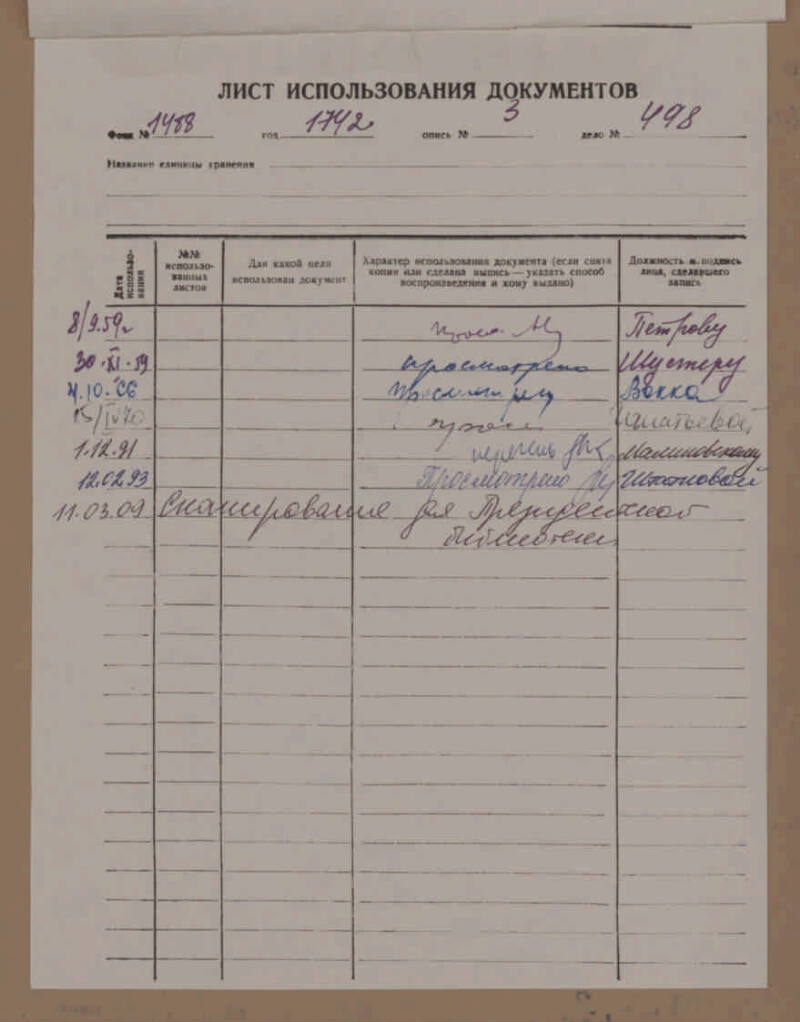 ЛИСТ ИСПОЛЬЗОВАНИЯ ДОКУМЕНТОВ
Фонд № 1488 год 1742 опись № 3 дело № 498
Название единицы хранения
Дата использования
№№ использованных листов
Для какой цели использован документ
Характер использования документа (если снята копия или сделана выпись — указать способ воспроизведения и кому выдано)
Должность и подпись лица, сделавшего запись
8/9.59г Петрову
30.XI.59 просмотрено Шустеру
4.10.66 Вокка
15/IV70
1.12.91 перечень Малиновскому
12.02.93 Просмотрено
11.03.09 Сканирование для Президентской
библиотеки